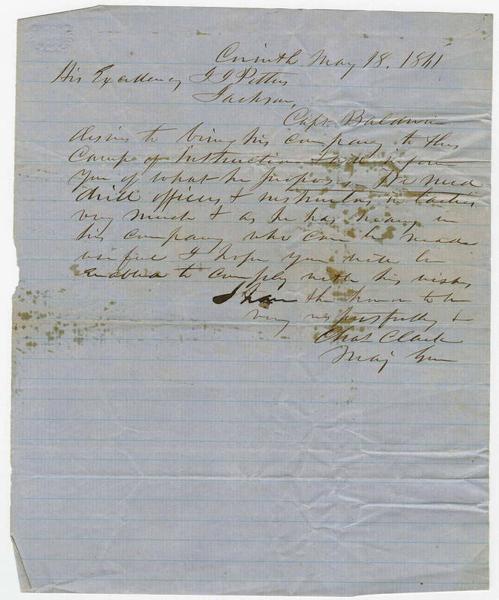 Corinth May 18. 1861
His Excellency J J Pettus
Jackson
Capt. Baldwin
desires to bring his company to this
Camp of Instruction & will inform
you of what he proposes. We need
drill officers & instructors in tactics
very much & as he has many in
his company who can be made
useful I hope you will be
enabled to comply with his wishes
I have the honor to be
very respectfully &
Chas Clark
Maj Gen